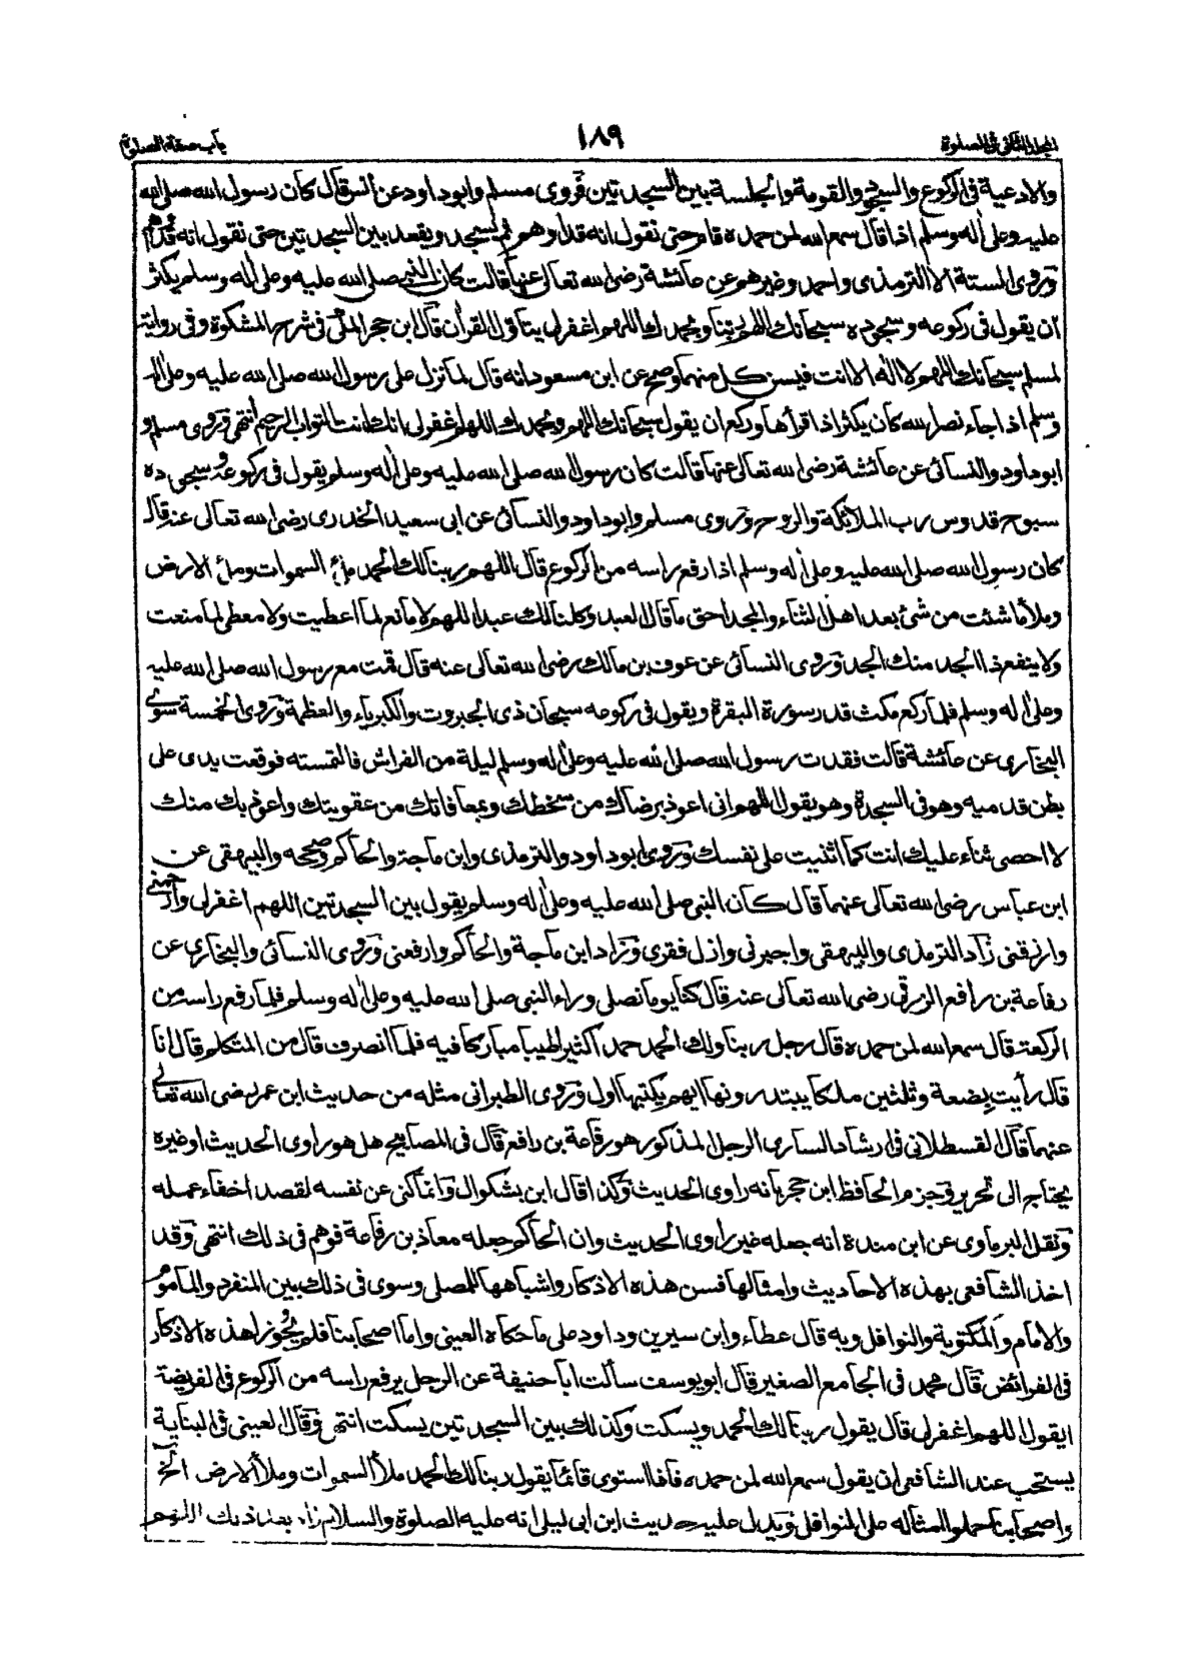 المجلد الثانى فى الصلوة ١٨٩ باب صفة الصلوة
والادعية فى الركوع والسجود والقومة والجلسة بين السجدتين فروى مسلم وابوداود عن انس قال كان رسول الله صلى الله
عليه وعلى اله وسلم اذا قال سمع الله لمن حمده قام حتى نقول انه قد اوهم ثم يسجد ويقعد بين السجدتين حتى نقول انه قد اوهم
وروى الستة الا الترمذى واحمد وغيرهم عن عائشة رضى الله تعالى عنها قالت كان النبى صلى الله عليه وعلى اله وسلم يكثر
ان يقول فى ركوعه وسجوده سبحانك اللهم ربنا وبحمدك اللهم اغفرلى يتاول القران قال ابن حجر المكى فى شرح المشكوة وفى رواية
لمسلم سبحانك اللهم لا اله الا انت فيسن كل منهما وصح عن ابن مسعود انه قال لما نزل على رسول الله صلى الله عليه وعلى اله
وسلم اذا جاء نصر الله كان يكثر اذا قرأها وركع ان يقول سبحانك اللهم وبحمدك اللهم اغفرلى انك انت التواب الرحيم انتهى وروى مسلم و
ابوداود والنسائى عن عائشة رضى الله تعالى عنها قالت كان رسول الله صلى الله عليه وعلى اله وسلم يقول فى ركوعه وسجوده
سبوح قدوس رب الملائكة والروح وروى مسلم وابوداود والنسائى عن ابى سعيد الخدرى رضى الله تعالى عنه قال
كان رسول الله صلى الله عليه وعلى اله وسلم اذا رفع راسه من الركوع قال اللهم ربنا لك الحمد ملأ السموات وملأ الارض
وملأ ما شئت من شئ بعد اهل الثناء والمجد احق ما قال العبد وكلنا لك عبد اللهم لا مانع لما اعطيت ولا معطى لما منعت
ولا ينفع ذا الجد منك الجد وروى النسائى عن عوف بن مالك رضى الله تعالى عنه قال قمت مع رسول الله صلى الله عليه
وعلى اله وسلم فلما ركع مكث قدر سورة البقرة ويقول فى ركوعه سبحان ذى الجبروت والكبرياء والعظمة وروى الخمسة سوى
البخارى عن عائشة قالت فقدت رسول الله صلى الله عليه وعلى اله وسلم ليلة من الفراش فالتمسته فوقعت يدى على
بطن قدميه وهو فى السجدة وهو يقول اللهم انى اعوذ برضاك من سخطك وبمعافاتك من عقوبتك واعوذ بك منك
لا احصى ثناء عليك انت كما اثنيت على نفسك وروى ابوداود والترمذى وابن ماجة والحاكم وصححه والبيهقى عن
ابن عباس رضى الله تعالى عنهما قال كان النبى صلى الله عليه وعلى اله وسلم يقول بين السجدتين اللهم اغفرلى وارحمنى
وارزقنى زاد الترمذى والبيهقى واجبرنى وازل فقرى وزاد ابن ماجة والحاكم وارفعنى وروى النسائى والبخارى عن
رفاعة بن رافع الزرقى رضى الله تعالى عنه قال كنا يوما نصلى وراء النبى صلى الله عليه وعلى اله وسلم فلما رفع راسه من
الركعة قال سمع الله لمن حمده قال رجل ربنا ولك الحمد حمدا كثيرا طيبا مباركا فيه فلما انصرف قال من المتكلم قال انا
قال رأيت بضعة وثلثين ملكا يبتدرونها ايهم يكتبها اول وروى الطبرانى مثله من حديث ابن عمر رضى الله تعالى
عنهما قال القسطلانى فى ارشاد السارى الرجل المذكور هو رفاعة بن رافع قال فى المصابيح هل هو راوى الحديث او غيره
يحتاج الى تحرير وجزم الحافظ ابن حجر بانه راوى الحديث وكذا قال ابن بشكوال وانما كنى عن نفسه لقصد اخفاء عمله
ونقل البرماوى عن ابن مندة انه جعله غير راوى الحديث وان الحاكم جعله معاذ بن رفاعة فوهم فى ذلك انتهى وقد
اخذ الشافعى بهذه الاحاديث وامثالها فسن هذه الاذكار واشباهها للمصلى وسوى فى ذلك بين المنفرد والماموم
والامام والمكتوبة والنوافل وبه قال عطاء وابن سيرين وداود على ما حكاه العينى واما اصحابنا فلم يجوزا هذه الاذكار
فى الفرائض قال محمد فى الجامع الصغير قال ابويوسف سألت ابا حنيفة عن الرجل يرفع راسه من الركوع فى الفريضة
ايقول اللهم اغفرلى قال يقول ربنا لك الحمد ويسكت وكذلك بين السجدتين يسكت انتهى وقال العينى فى البناية
يستحب عند الشافعى ان يقول سمع الله لمن حمده فاذا استوى قائما يقول ربنا لك الحمد ملأ السموات وملأ الارض الخ
واصحابنا حملوا امثاله على النوافل ويدل عليه حديث ابن ابى ليلى انه عليه الصلوة والسلام زاد بعد ذلك اللهم